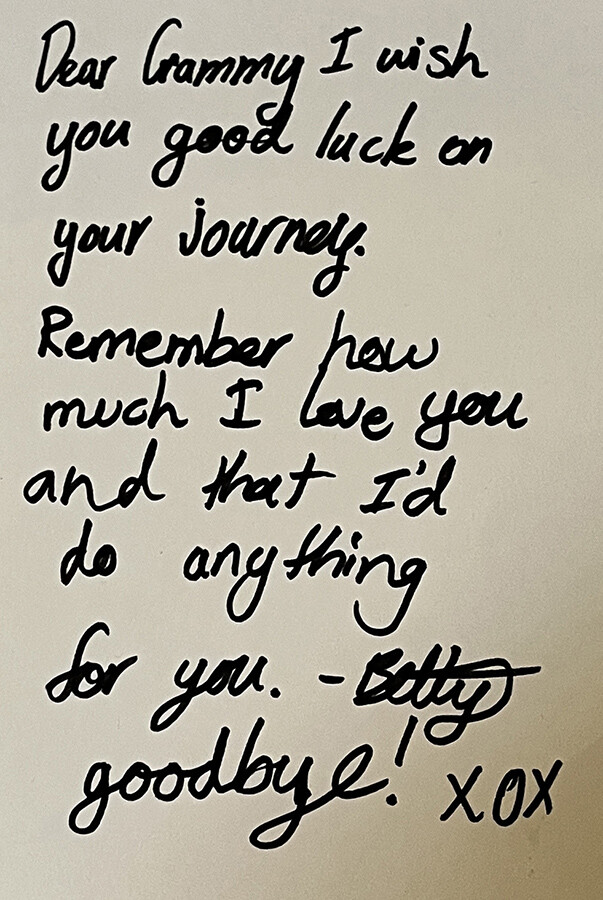 Dear Grammy I wish
you good luck on
your journey.
Remember how
much I love you
and that I'd
do anything
for you. - Betty
goodbye! XOX